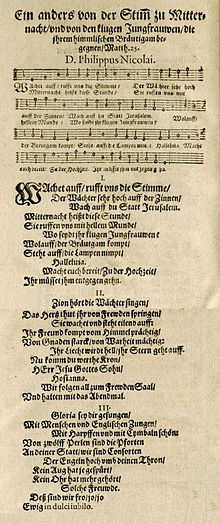 Ein anders von der Stim̃ zu Mitter-
nacht/vnd von den klugen Jungfrauwen/die
ihrem himmlischen Bräutgam be-
gegnen/Matth. 25.
D. Philippus Nicolai.
WAchet auff/ rufft vns die Stimme/ Der Wächter sehr hoch
Mitternacht heißt diese Stunde/ Sie ruffen vns mit
auff der Zinnen/ Wach auff du Statt Jerusalem. Wolauff/
hellem Munde/ Wo seydt jhr klugen Jungfrauwen?
der Bräutgam kompt/ Steht auff die Lampen nimt. Halleluia. Macht
euch bereit/ Zu der Hochzeit. Ihr müsset jhm entgegen gehn.
I.
WAchet auff/ rufft vns die Stimme/
Der Wächter sehr hoch auff der Zinnen/
Wach auff du Statt Jerusalem.
Mitternacht heißt diese Stunde/
Sie ruffen vns mit hellem Munde/
Wo seydt jhr klugen Jungfrauwen?
Wolauff/ der Bräutgam kompt/
Steht auff/ die Lampen nimpt/
Halleluia.
Macht euch bereit/ Zu der Hochzeit/
Ihr müsset jhm entgegen gehn.
II.
Zion hört die Wächter singen/
Das Hertz thut jhr von Frewden springen/
Sie wachet vnd steht eilend auff:
Ihr Freund kompt vom Himmel prächtig/
Von Gnaden starck/ von Warheit mächtig:
Ihr Liecht wird hell/ jhr Stern geht auff.
Nu komm du werthe Kron/
HErr Jesu Gottes Sohn/
Hosianna.
Wir folgen all zum Frewden Saal/
Vnd halten mit das Abendmal.
III.
Gloria sey dir gesungen/
Mit Menschen vnd Englischen Zungen/
Mit Harpffen vnd mit Cymbaln schön:
Von zwölff Perlen sind die Pforten
An deiner Statt/ wir sind Consorten
Der Engeln hoch vmb deinen Thron/
Kein Aug hat je gespürt/
Kein Ohr hat mehr gehört/
Solche Frewde.
Deß sind wir fro/ jo/ jo
Ewig in dulci iubilo.